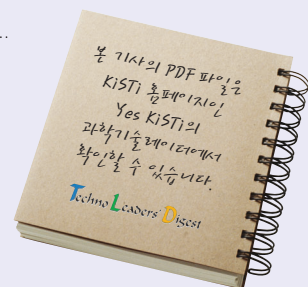 ..
본 기사의 PDF 파일은
KiSTi 홈페이지인
Yes KiSTi의
과학기술레이더에서
확인할 수 있습니다.
Techno Leaders' Digest